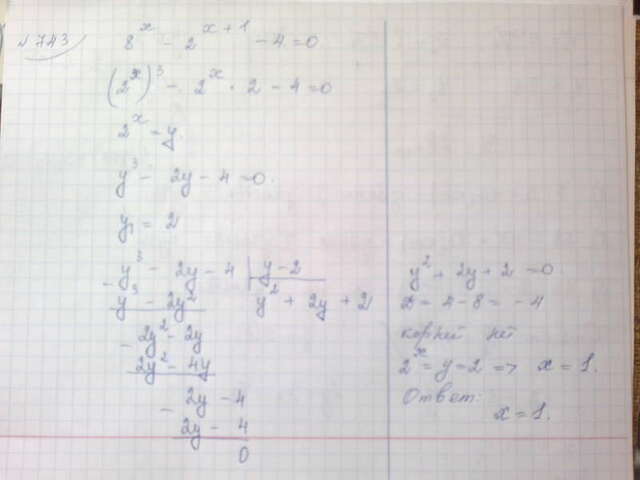 №743
8^x - 2^{x+1} - 4 = 0
(2^x)^3 - 2^x · 2 - 4 = 0
2^x = y.
y^3 - 2y - 4 = 0.
y₁ = 2
y^3 - 2y - 4 | y - 2
y^3 - 2y^2 | y^2 + 2y + 2
2y^2 - 2y
2y^2 - 4y
2y - 4
2y - 4
0
y^2 + 2y + 2 = 0
D = 4 - 8 = -4
корней нет
2^x = y = 2 => x = 1.
Ответ:
x = 1.